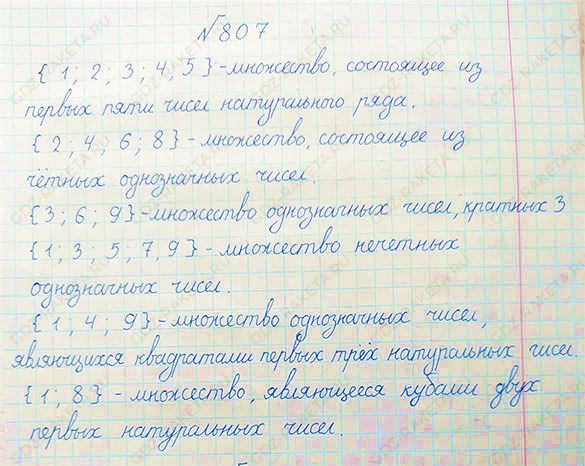 №807
{ 1; 2; 3; 4; 5 } - множество, состоящее из
первых пяти чисел натурального ряда.
{ 2; 4; 6; 8 } - множество, состоящее из
чётных однозначных чисел.
{ 3; 6; 9 } - множество однозначных чисел, кратных 3
{ 1; 3; 5; 7, 9 } - множество нечетных
однозначных чисел.
{ 1, 4; 9 } - множество однозначных чисел,
являющихся квадратами первых трёх натуральных чисел.
{ 1; 8 } - множество, являющееся кубами двух
первых натуральных чисел.
GDZ-RAKETA.RU